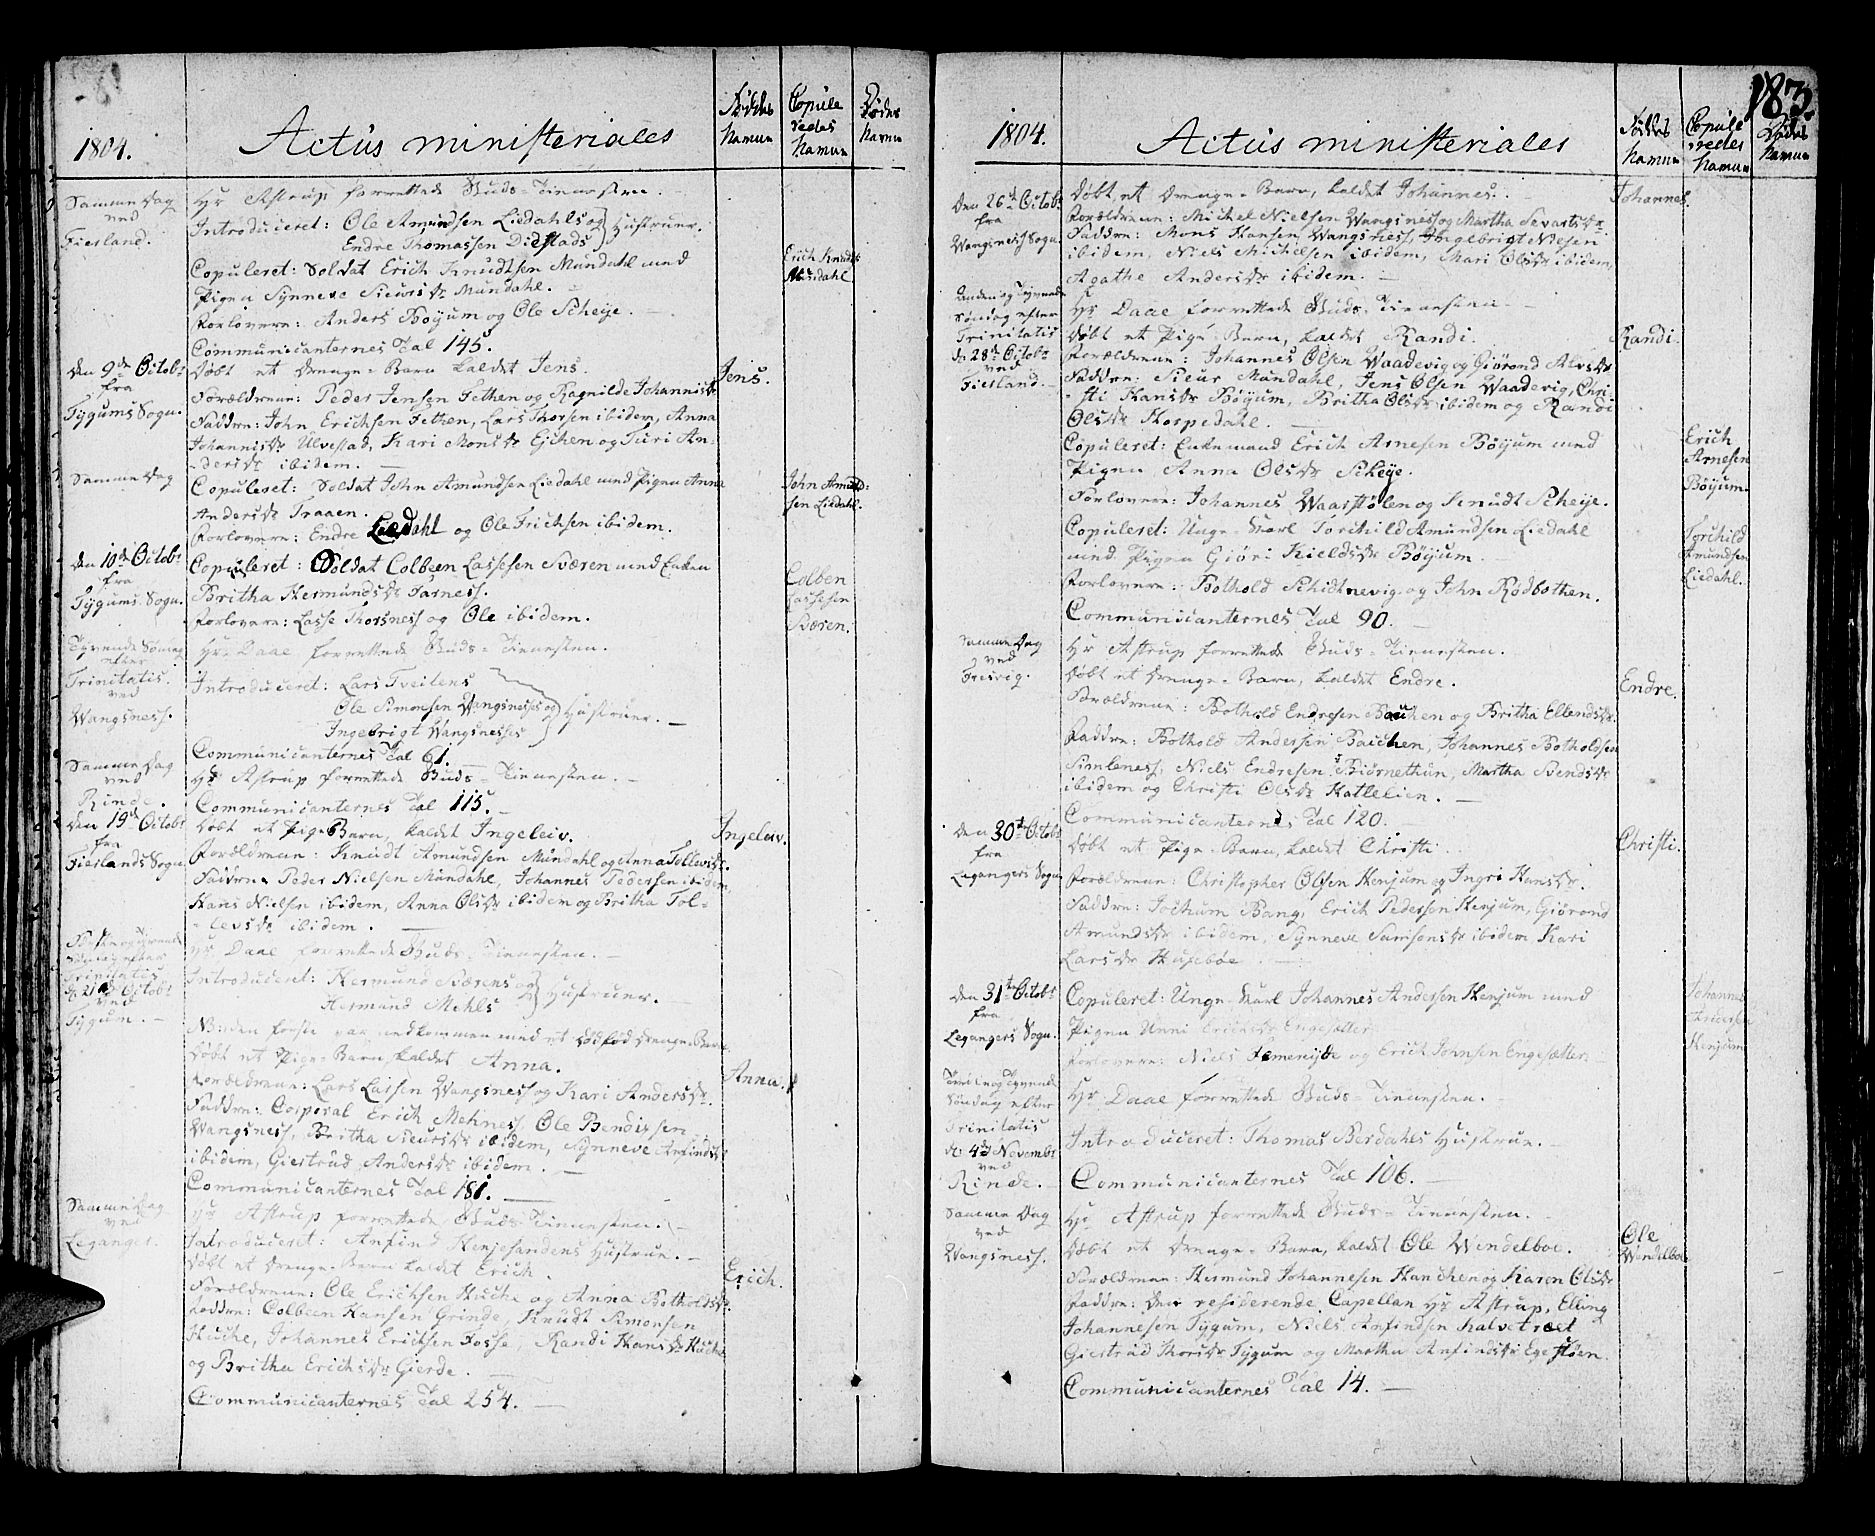 1804.
Actus ministeriales
Fødde
Namne
Copule
redes
Namne
Dødes
Namne
Samme Dag
ved
Fierland.
Hr Astrup forrettede Guds-Tienesten.
Introduceret: Ole Amundsen Liedahls og
Endre Thomassen Hustruer.
Copuleret: Soldat Erich Knudtsen Mundahl med
Pigen Synneve Siursdr Mundahl.
Forlovere: Anders Bøyum og Ole Scheye.
Communicanternes Tal 145.
Erich Knudts
Mundahl
Den 9de Octobr
fra
Tygums Sogn.
Døbt et Drenge-Barn kaldet Jens.
Forældrene: Peder Jensen Fethen og Ragnilde Johannisdr
Faddre: John Erichsen Fethen, Lars Thorsen ibidem, Anna
Johannisdr Ulvestad, Kari Monsdr Ejchen og Turi An-
-dersdr ibidem.
Jens.
Samme Dag
Copuleret: Soldat John Amundsen Liedahl med Pigen Anna
Andersdr Traaen.
Forlovere: Endre Liedahl og Ole Erichsen ibidem.
John Amund-
sen Liedahl.
Den 10de Octobr
fra
Tygums Sogn.
Copuleret: Soldat Colbeen Lassesen Sværen med Enken
Britha Hermundsdr Farness.
Forlovere: Lasse Thorsness og Ole ibidem.
Colben
Lassesen
Sværen.
Tyvende Søndag
efter
Trinitatis.
ved
Wangsness.
Hr Daae forrettede Guds-Tienesten.
Introduceret: Lars Tveitens
Ole Simonsen Wangsnesses og
Ingebrigt Wangsnesses Hustruer.
Communicanternes Tal 61.
Samme Dag
ved
Rinde.
Hr Astrup forrettede Guds-Tienesten.
Communicanternes Tal 115.
Den 19de Octobr
fra
Fierlands Sogn.
Døbt et Pige-Barn, kaldet Ingeleiv.
Forældrene: Knudt Amundsen Mundahl og Anna Tollevsdr.
Faddre: Peder Nielsen Mundahl, Johannes Pedersen ibidem,
Hans Nielsen ibidem, Anna Olsdr ibidem og Britha Tol-
-levsdr ibidem.
Ingeleiv.
Første og Tyvende
Søndag efter
Trinitatis
d: 21de Octobr
ved
Tygum.
Hr Daae forrettede Guds-Tienesten.
Introduceret: Hermund Sværens og
Hermund Mehls Hustruer.
NB: den første var nedkommen med et dødfød Drenge-Barn.
Døbt et Pige-Barn kaldet Anna.
Forældrene: Lars Larsen Wangsness og Kari Andersdr.
Faddre: Corporal Erich Mehness, Ole Bendixsen
Wangsness, Britha Siursdr ibidem, Synneve Anfindsdr
ibidem, Giertrud Andersdr ibidem.
Communicanternes Tal 181.
Anna.
Samme Dag
ved
Leganger.
Hr Astrup forrettede Guds-Tienesten.
Introduceret: Anfind Henjesandens Hustrue.
Døbt et Drenge-Barn kaldet Erich.
Forældrene: Ole Erichsen Huche og Anna Botholdsdr.
Faddre: Colbeen Hansen Grinde, Knudt Simonsen
Huche, Johannes Erichsen Fosse, Randi Hansdr Huche
og Britha Erichsdr Gierde.
Communicanternes Tal 254.
Erich.
183.
1804.
Actus ministeriales
Fødde
Namne
Copule
redes
Namne
Dødes
Namne
Den 26de Octobr
fra
Wangsness Sogn.
Døbt et Drenge-Barn, kaldet Johannes.
Forældrene: Michel Nielsen Wangsness og Martha Sevartsdr.
Faddre: Mons Hansen Wangsness, Ingebrigt Nielsen
ibidem, Niels Michelsen ibidem, Mari Olsdr ibidem,
Agathe Andersdr ibidem.
Johannes.
Anden og Tyvende
Søndag efter
Trinitatis
d: 28de Octobr
ved
Fierland.
Hr Daae forrettede Guds-Tienesten.
Døbt et Pige-Barn, kaldet Randi.
Forældrene: Johannes Olsen Waadevig og Giørond Alvsdr
Faddre: Siur Mundahl, Jens Olsen Waadevig, Chri-
-sti Hansdr Bøyum, Britha Olsdr ibidem og Randi
Olsdr Thorpedahl.
Randi.
Copuleret: Enkemand Erich Arnesen Bøyum med
Pigen Anna Olsdr Scheye.
Forlovere: Johannes Waarstølen og Knudt Scheye.
Erich
Arnesen
Bøyum.
Copuleret: Unge-Karl Torchild Amundsen Liedahl
med Pigen Giøri Kieldsdr Bøyum.
Forlovere: Bothold Schidtnevig og John Rødbothen.
Communicanternes Tal 90.
Torchild
Amundsen
Liedahl.
Samme Dag
ved
Fresvig.
Hr Astrup forrettede Guds-Tienesten.
Døbt et Drenge-Barn, kaldet Endre.
Forældrene: Bothold Endresen Bauchen og Britha Ellendsdr.
Faddre: Bothold Andersen Bauchen, Johannes Botholdsen
Simleness, Niels Endresen Biørnethun, Martha Svendsdr
ibidem og Christi Olsdr Hatlelien.
Communicanternes Tal 120.
Endre.
Den 30te Octobr
fra
Legangers Sogn
Døbt et Pige-Barn, kaldet Christi.
Forældrene: Christopher Olsen Henjum og Ingri Hansdr.
Faddre: Jochum Bang, Erich Pedersen Henjum, Giørond
Amundsdr ibidem, Synneve Samsonsdr ibidem, Kari
Larsdr Husebøe.
Christi.
Den 31te Octobr
fra
Legangers Sogn.
Copuleret: Unge-Karl Johannes Andersen Henjum med
Pigen Unni Erichsdr Engesætter.
Forlovere: Niels og Erich Johnsen Engesætter.
Johannes
Andersen
Henjum
Tredie og Tyvende
Søndag efter
Trinitatis
d: 4de Novembr
ved
Rinde.
Hr Daae forrettede Guds-Tienesten.
Introduceret: Thomas Berdahls Hustrue.
Communicanternes Tal 106.
Samme Dag
ved
Wangsness.
Hr Astrup forrettede Guds-Tienesten.
Døbt et Drenge-Barn, kaldet Ole Wendelboe.
Forældrene: Hermund Johannesen Hanchen og Karen Olsdr
Faddre: Den residerende Capellan Hr Astrup, Elling
Johannesen Tygum, Niels Anfindsen Halvetræt
Giertrud Thorsdr Tygum og Martha Anfindsdr Egestøen.
Communicanternes Tal 14.
Ole
Wendelboe